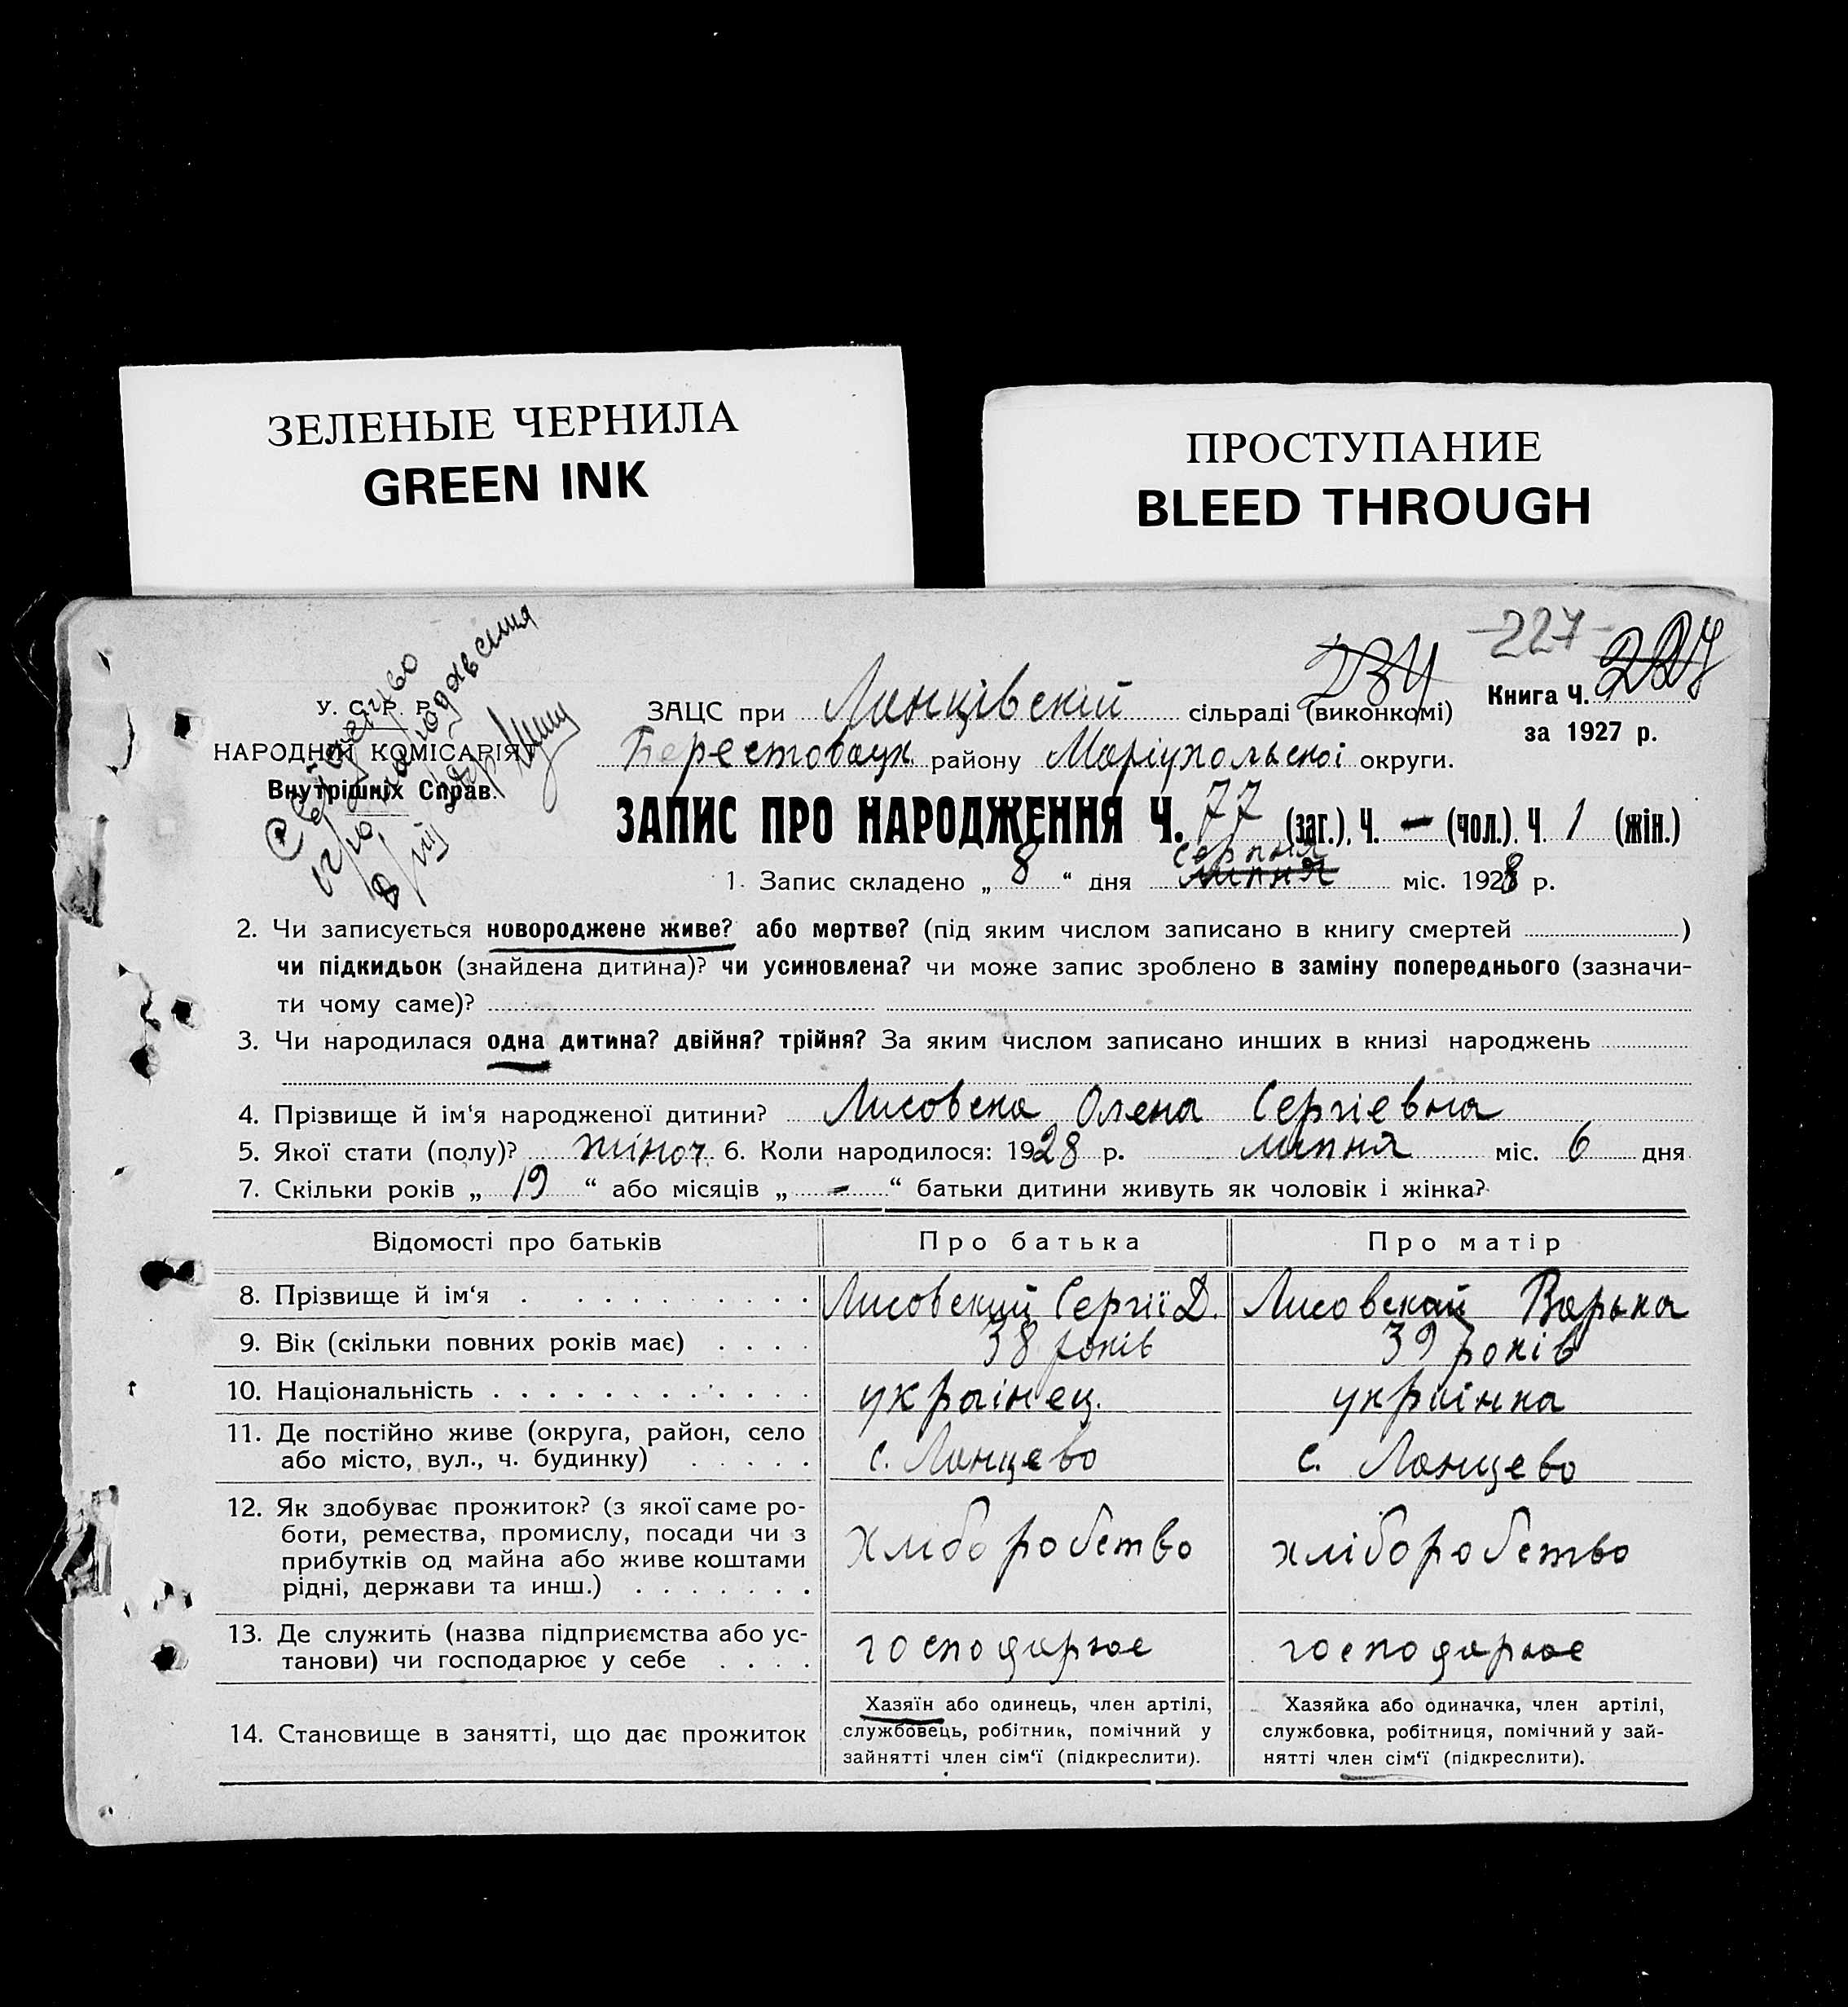 ЗЕЛЕНЫЕ ЧЕРНИЛА
GREEN INK
ПРОСТУПАНИЕ
BLEED THROUGH
-227-
234
227
У. С. Р. Р.
НАРОДНІЙ КОМІСАРІЯТ
Внутрішніх Справ.
ЗАЦС при Ланцівскій сільраді (виконкомі)
Книга Ч.
за 1927 р.
району Маріупольскої округи.
ЗАПИС ПРО НАРОДЖЕННЯ Ч. 77 (заг.), Ч. - (чол.), Ч 1 (жін.)
серпня
1. Запис складено „ 8 “ дня липня міс. 1928 р.
2. Чи записується новороджене живе? або мертве? (під яким числом записано в книгу смертей )
чи підкидьок (знайдена дитина)? чи усиновлена? чи може запис зроблено в заміну попереднього (зазначи-
ти чому саме)?
3. Чи народилася одна дитина? двійня? трійня? За яким числом записано инших в книзі народжень
4. Прізвище й ім‘я народженої дитини? Лисовска Олена Сергіевна
5. Якої стати (полу)? жіноч. 6. Коли народилося: 1928 р. липня міс. 6 дня
7. Скільки років „ 19 “ або місяців „ - “ батьки дитини живуть як чоловік і жінка?
Відомості про батьків Про батька Про матір
8. Прізвище й ім‘я Лисовский Сергій Д. Лисовскай Варька
9. Вік (скільки повних років має) 38 років 39 років
10. Національність украінец. украінка
11. Де постійно живе (округа, район, село
або місто, вул., ч. будинку) с. Ланцево с. Ланцево
12. Як здобуває прожиток? (з якої саме ро-
боти, ремества, промислу, посади чи з
прибутків од майна або живе коштами
рідні, держави та инш.) хліборобство хліборобство
13. Де служить (назва підприємства або ус-
танови) чи господарює у себе господарює господарює
14. Становище в занятті, що дає прожиток
Хазяїн або одинець, член артілі,
службовець, робітник, помічний у
зайнятті член сім‘ї (підкреслити).
Хазяйка або одиначка, член артілі,
службовка, робітниця, помічний у зай-
нятті член сім‘ї (підкреслити).